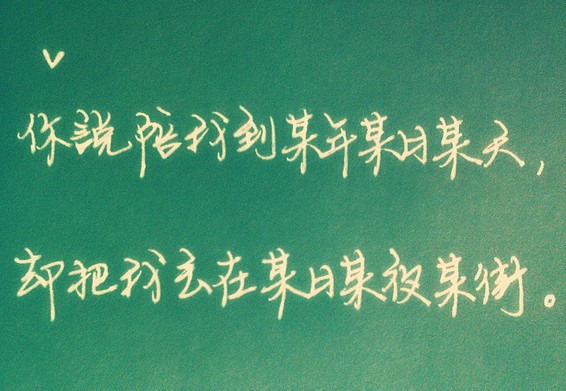 你説陪我到某年某月某天,
却把我丢在某日某夜某街。